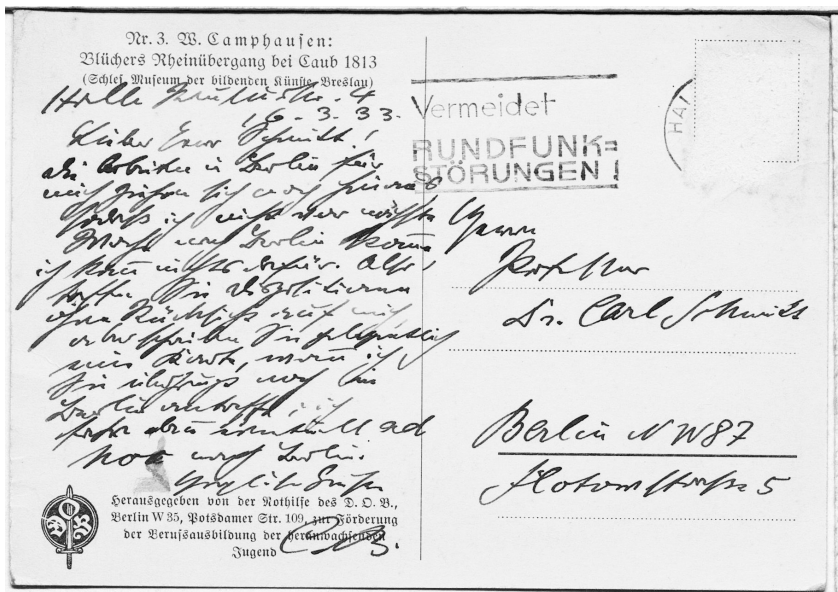 Nr. 3. W. Camphausen:
Blüchers Rheinübergang bei Caub 1813
(Schles. Museum der bildenden Künste, Breslau)
Halle
3. 33.
Lieber Herr Schmitt!
die Arbeiten in Berlin für
mich ziehen sich noch hinaus
sodaß ich nicht vor nächster
Woche nach Berlin komme
ich kann nichts dafür. Also,
treffen Sie Dispositionen
ohne Rücksicht auf mich
aber schreiben Sie gelegentlich
eine Karte, wann ich
Sie überhaupt noch in
Berlin antreffe, ich
fahre dann eventuell ad
hoc nach Berlin.
Herzliche Grüße
CB.
Herausgegeben von der Nothilfe des D. O. B.,
Berlin W 35, Potsdamer Str. 109, zur Förderung
der Berufsausbildung der heranwachsenden
Jugend
Vermeidet
RUNDFUNK=
STÖRUNGEN!
HAL
Herrn
Professor
Dr. Carl Schmitt
Berlin NW 87
Flotowstraße 5